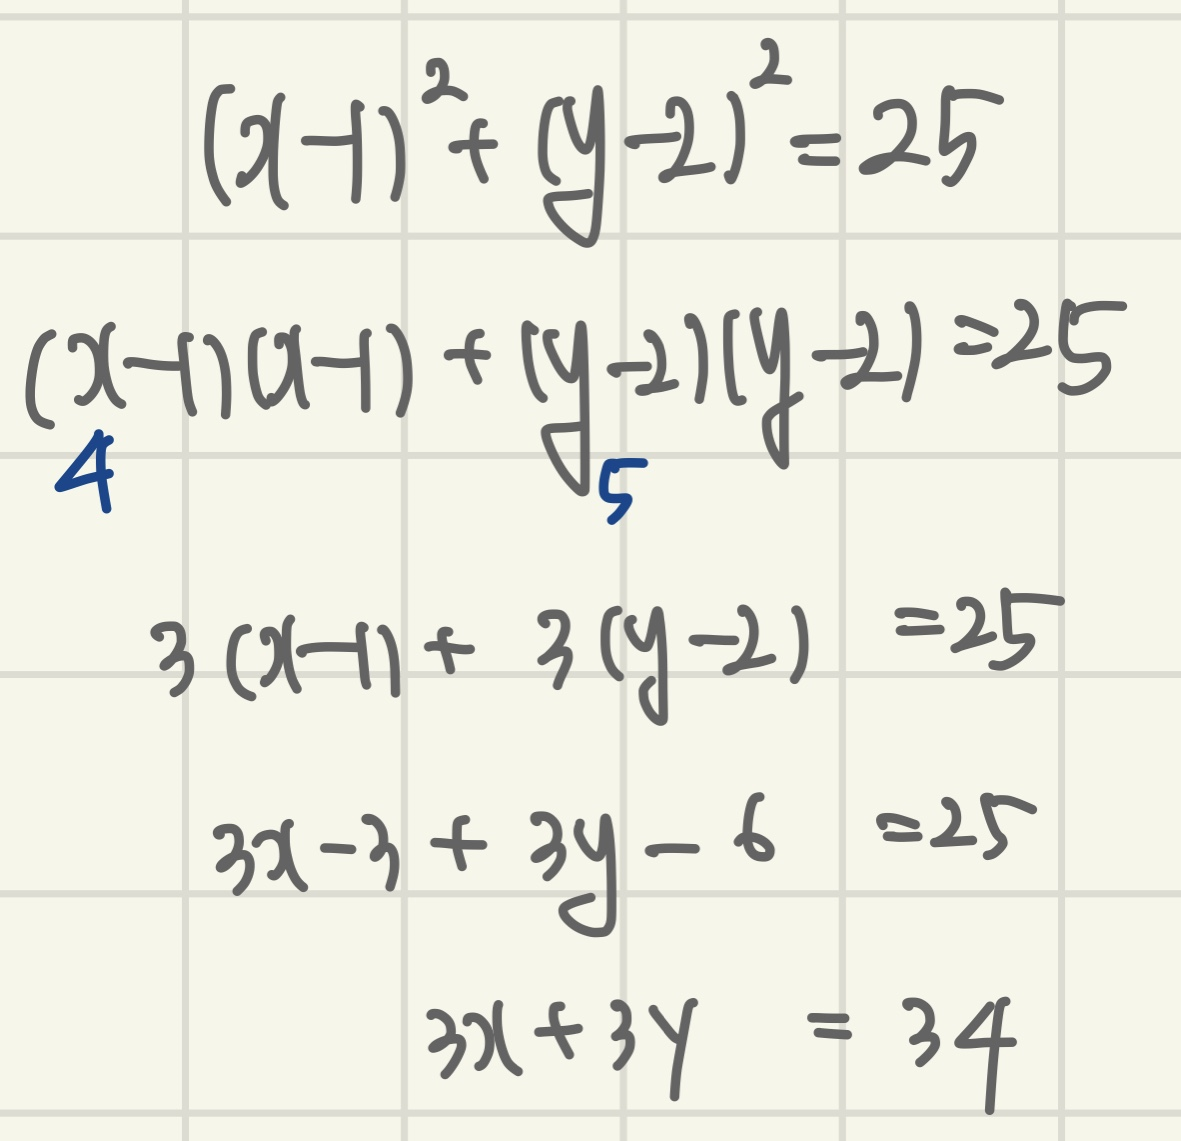 (x-1)²+(y-2)²=25
(x-1)(x-1)+(y-2)(y-2)=25
4 5
3(x-1)+3(y-2)=25
3x-3+3y-6=25
3x+3y=34